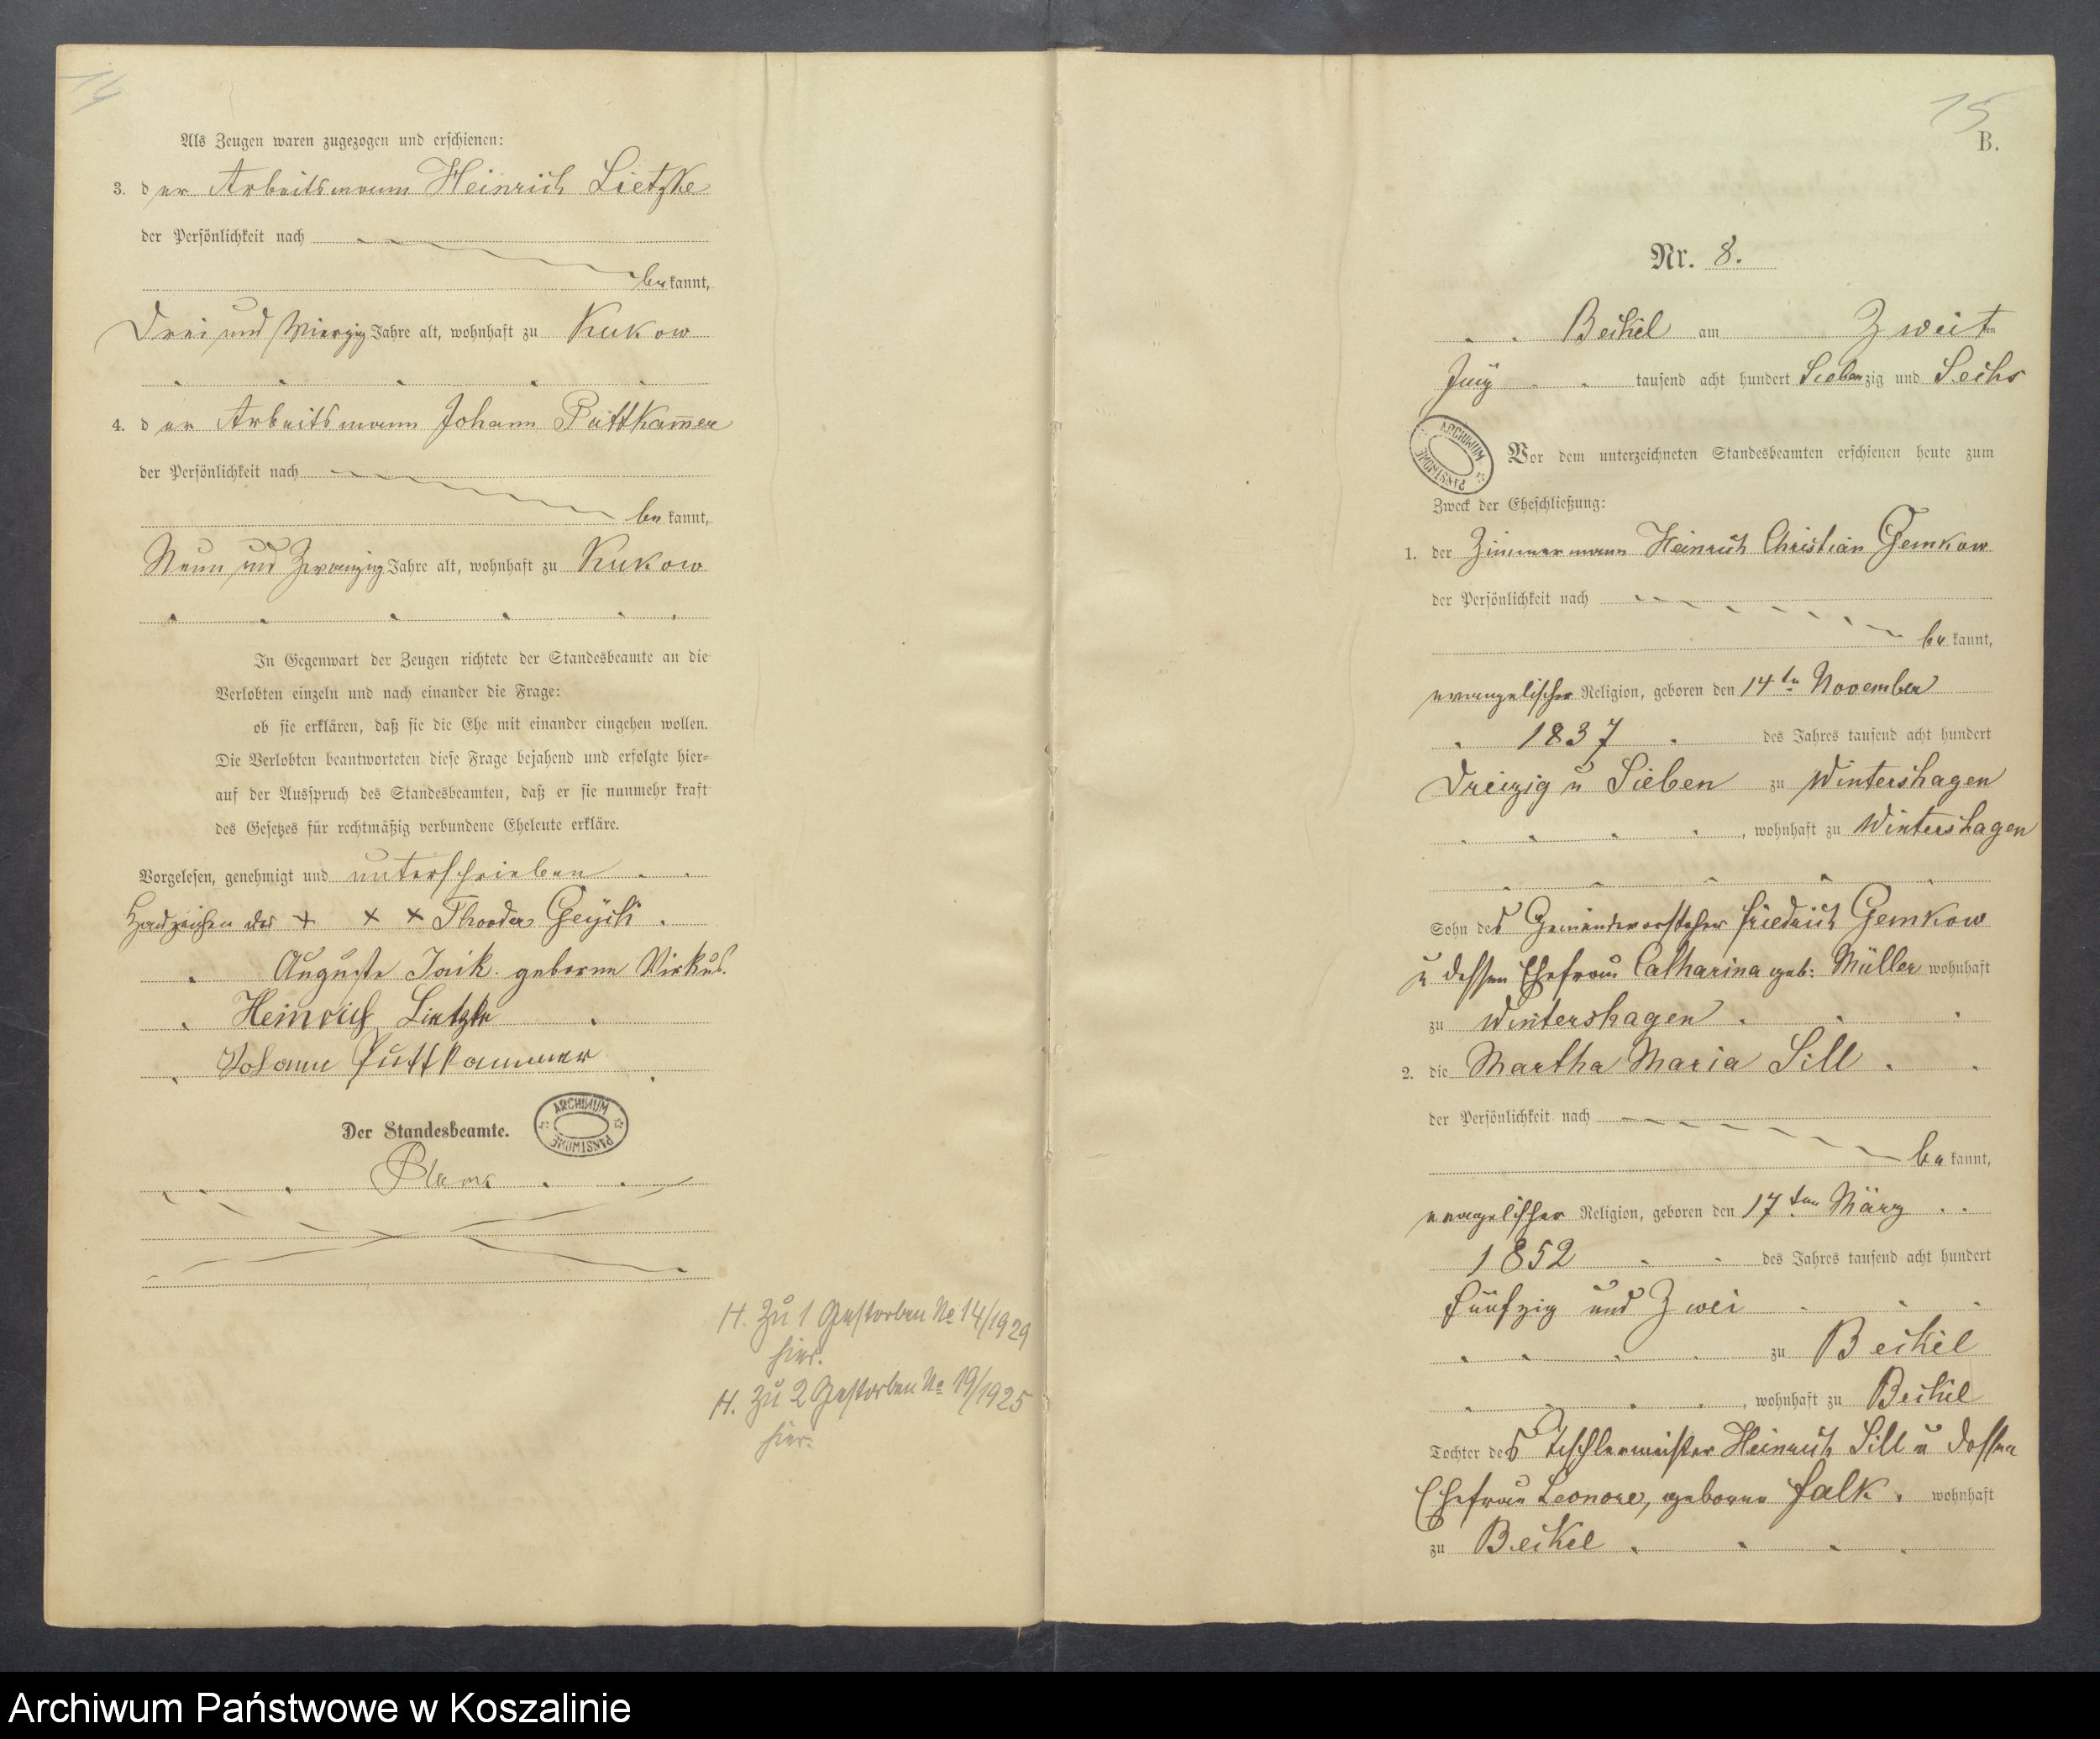 14
Als Zeugen waren zugezogen und erschienen:
3. der Arbeitsmann Heinrich Lietzke
der Persönlichkeit nach
bekannt,
Drei und Vierzig Jahre alt, wohnhaft zu Kukow
4. der Arbeitsmann Johann Puttkam̅er
der Persönlichkeit nach
bekannt,
Neun und Zwanzig Jahre alt, wohnhaft zu Kukow
In Gegenwart der Zeugen richtete der Standesbeamte an die
Verlobten einzeln und nach einander die Frage:
ob sie erklären, daß sie die Ehe mit einander eingehen wollen.
Die Verlobten beantworteten diese Frage bejahend und erfolgte hier-
auf der Ausspruch des Standesbeamten, daß er sie nunmehr kraft
des Gesetzes für rechtmäßig verbundene Eheleute erkläre.
Vorgelesen, genehmigt und unterschrieben
Handzeichen des + + +
Auguste geborne Virkus.
Heinrich Lietzke
Johann Puttkammer
Der Standesbeamte.
ARCHIWUM PAŃSTWOWE
H. Zu 1 Gestorben No 14/1929
hier.
H. Zu 2 Gestorben No 19/1925
hier.
15
B.
Nr. 8.
Beikel am Zweiten
Juny tausend acht hundert Siebenzig und Sechs
ARCHIWUM PAŃSTWOWE
Vor dem unterzeichneten Standesbeamten erschienen heute zum
Zweck der Eheschließung:
1. der Zimmermann Heinrich Christian Gemkow
der Persönlichkeit nach
bekannt,
evangelischer Religion, geboren den 14ten November
1837 des Jahres tausend acht hundert
Dreizig u Sieben zu Wintershagen
, wohnhaft zu Wintershagen
Sohn des Gemeindevorsteher Friedrich Gemkow
u dessen Ehefrau Catharina geb: Müller wohnhaft
zu Wintershagen
2. die Martha Maria Sill
der Persönlichkeit nach
bekannt,
evangelischer Religion, geboren den 17ten März
1852 des Jahres tausend acht hundert
Fünfzig und Zwei
zu Beikel
, wohnhaft zu Beikel
Tochter des Tischlermeister Heinrich Sill u dessen
Ehefrau Leonore, geborne Falk. wohnhaft
zu Beikel
Archiwum Państwowe w Koszalinie